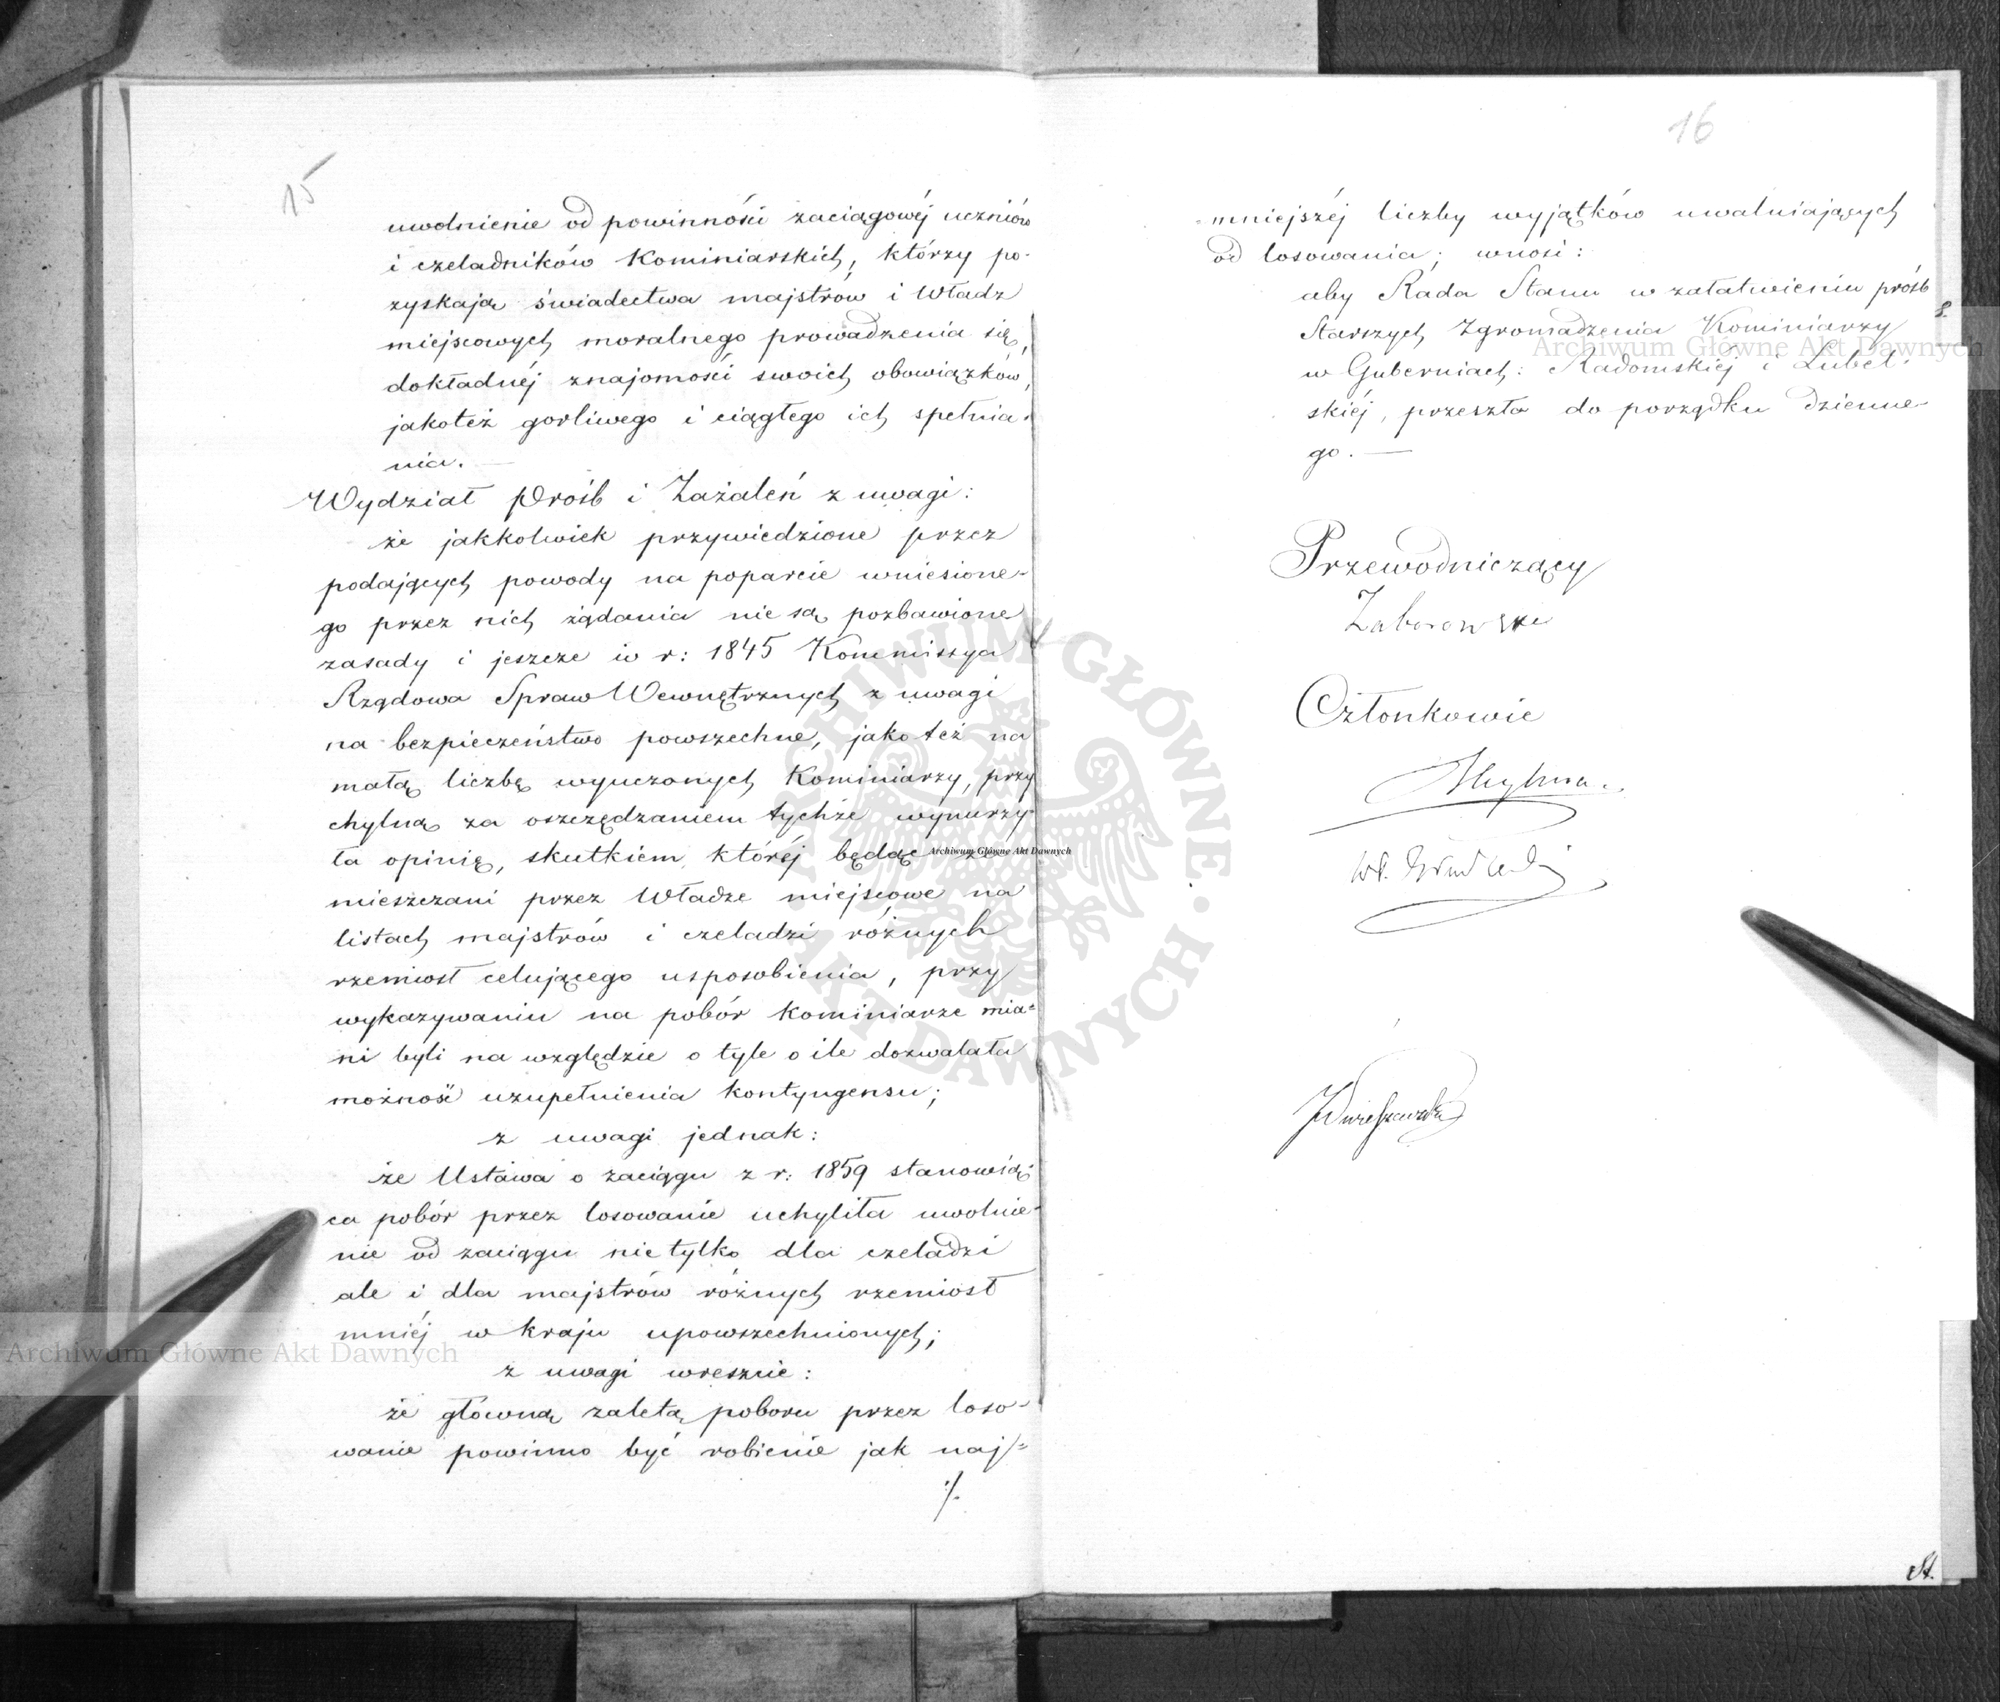 15
uwolnienie od powinności zaciągowéj uczniów
i czeladników Kominiarskich, którzy po-
zyskają świadectwa majstrów i Władz
miejscowych moralnego prowadzenia się,
dokładnéj znajomości swoich obowiązków,
jakoteż gorliwego i ciągłego ich spełnia-
nia. —
Wydział Próśb i Zażaleń z uwagi:
że jakkolwiek przywiedzione przez
podających powody na poparcie wniesione-
go przez nich żądania nie są pozbawione
zasady i jeszcze w r: 1845 Kommissya
Rządowa Spraw Wewnętrznych z uwagi
na bezpieczeństwo powszechne, jako też na
małą liczbę wyuczonych Kominiarzy, przy
chylną za oszczędzaniem tychże wynurzy-
ła opinię, skutkiem któréj będąc za-
mieszczani przez Władze miejscowe na
listach majstrów i czeladzi różnych
rzemiosł celującego usposobienia, przy
wykazywaniu na pobór Kominiarze mia=
ni byli na względzie o tyle o ile dozwalała
możność uzupełnienia kontyngensu;
z uwagi jednak:
że Ustawa o zaciągu z r: 1859 stanowią-
ca pobór przez losowanie uchyliła uwolnie-
nie od zaciągu nie tylko dla czeladzi
ale i dla majstrów różnych rzemiosł
mniéj w kraju upowszechnionych;
z uwagi wreszcie:
że główną zaletą poboru przez loso-
wanie powinno być robienie jak naj=
./.
16
mniejszéj liczby wyjątków uwalniających
od losowania; wnosi:
aby Rada Stanu w załatwieniu próśb
Starszych Zgromadzenia Kominiarzy
w Guberniach: Radomskiéj i Lubel-
skiéj, przeszła do porządku dzienne-
go. —
Przewodniczący
Zaborowski
Członkowie
St.
Archiwum Główne Akt Dawnych
Archiwum Główne Akt Dawnych
Archiwum Główne Akt Dawnych
ARCHIWUM GŁÓWNE · AKT DAWNYCH ·